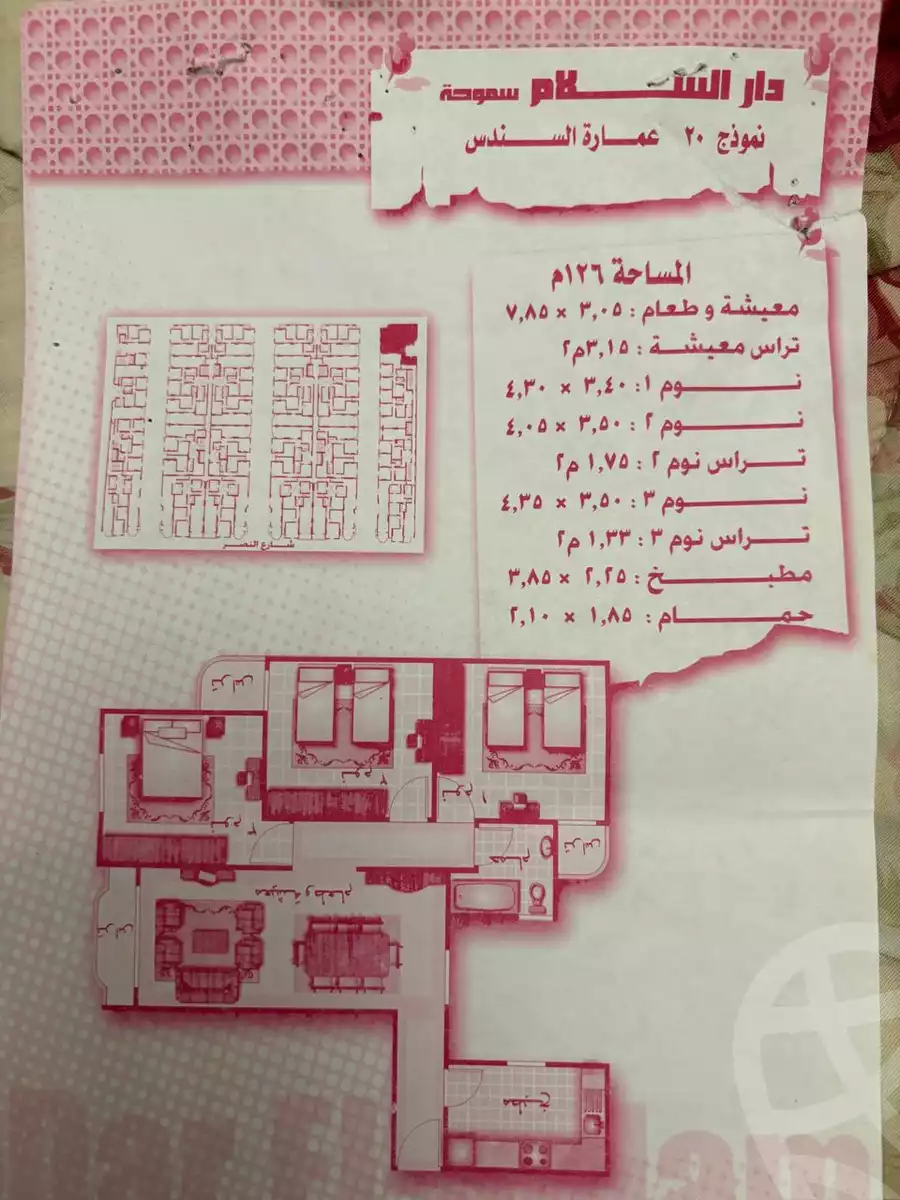 دار الســـلام سموحة
نموذج ٢٠ عمارة السندس
المساحة ١٢٦م
معيشة وطعام : ٣,٠٥ × ٧,٨٥
تراس معيشة : ٣,١٥م٢
نـــوم ١: ٣,٤٠ × ٤,٣٠
نـــوم ٢: ٣,٥٠ × ٤,٠٥
تـــراس نوم ٢ : ١,٧٥ م٢
نـــوم ٣ : ٣,٥٠ × ٤,٣٥
تـــراس نوم ٣ : ١,٣٣ م٢
مطبـــخ : ٢,٢٥ × ٣,٨٥
حمـــام : ١,٨٥ × ٢,١٠
شارع النصر
تراس
نوم ٢
نوم ١
نوم ٣
حمام
تراس
معيشة وطعام
تراس
مطبخ